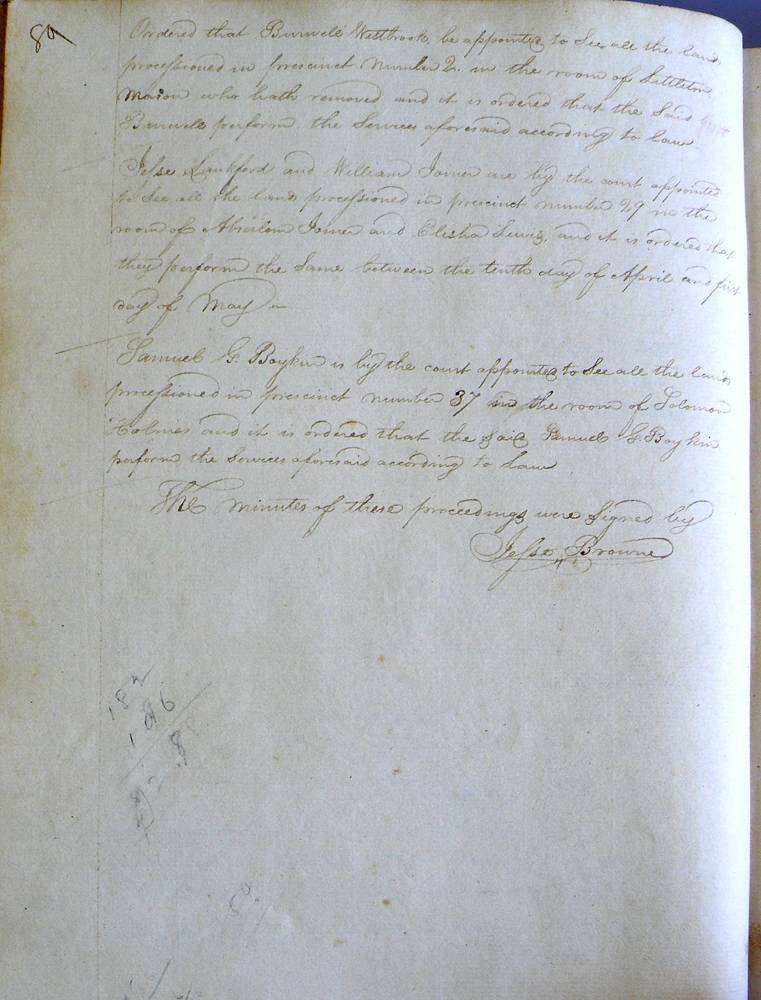 Ordered that Burwell Westbrook, be appointed to See all the land
processioned in prescinct Number 2. in the room of Littleton
Mason who hath removed and it is ordered that the Said
Burwell perform the Services aforesaid according to law
Jesse Lankford and William Joiner are by the court appointed
to See all the land processioned in precinct number 29 in the
room of Absalom Joiner and Elisha Lewis, and it is ordered that
they perform the Same between the tenth day of April and first
day of May
Samuel G. Boykin is by the court appointed to See all the land
processioned in prescinct number 37 in the room of Solomon
Holmes and it is ordered that the said Samuel G. Boykin
perform the Services aforesaid according to law
The minutes of these proceedings were Signed by
Jesse Browne
182